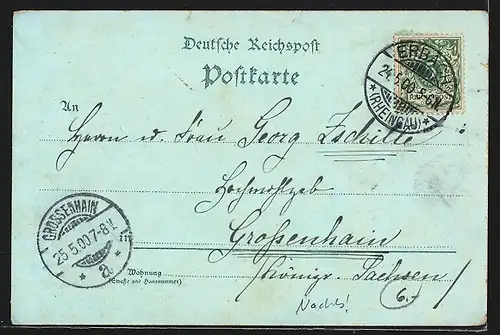 Deutsche Reichspost
Postkarte
ERBACH
24.5.00. 5-6N.
*(RHEINGAU)*
An
Herrn u. Frau Georg Zschille
Hochwohlgeb
GROSSENHAIN
25.5.00.7-8V.
* a *
in
Großenhain
Wohnung
(Straße und Hausnummer)
(Königr. Sachsen)
Nachts!